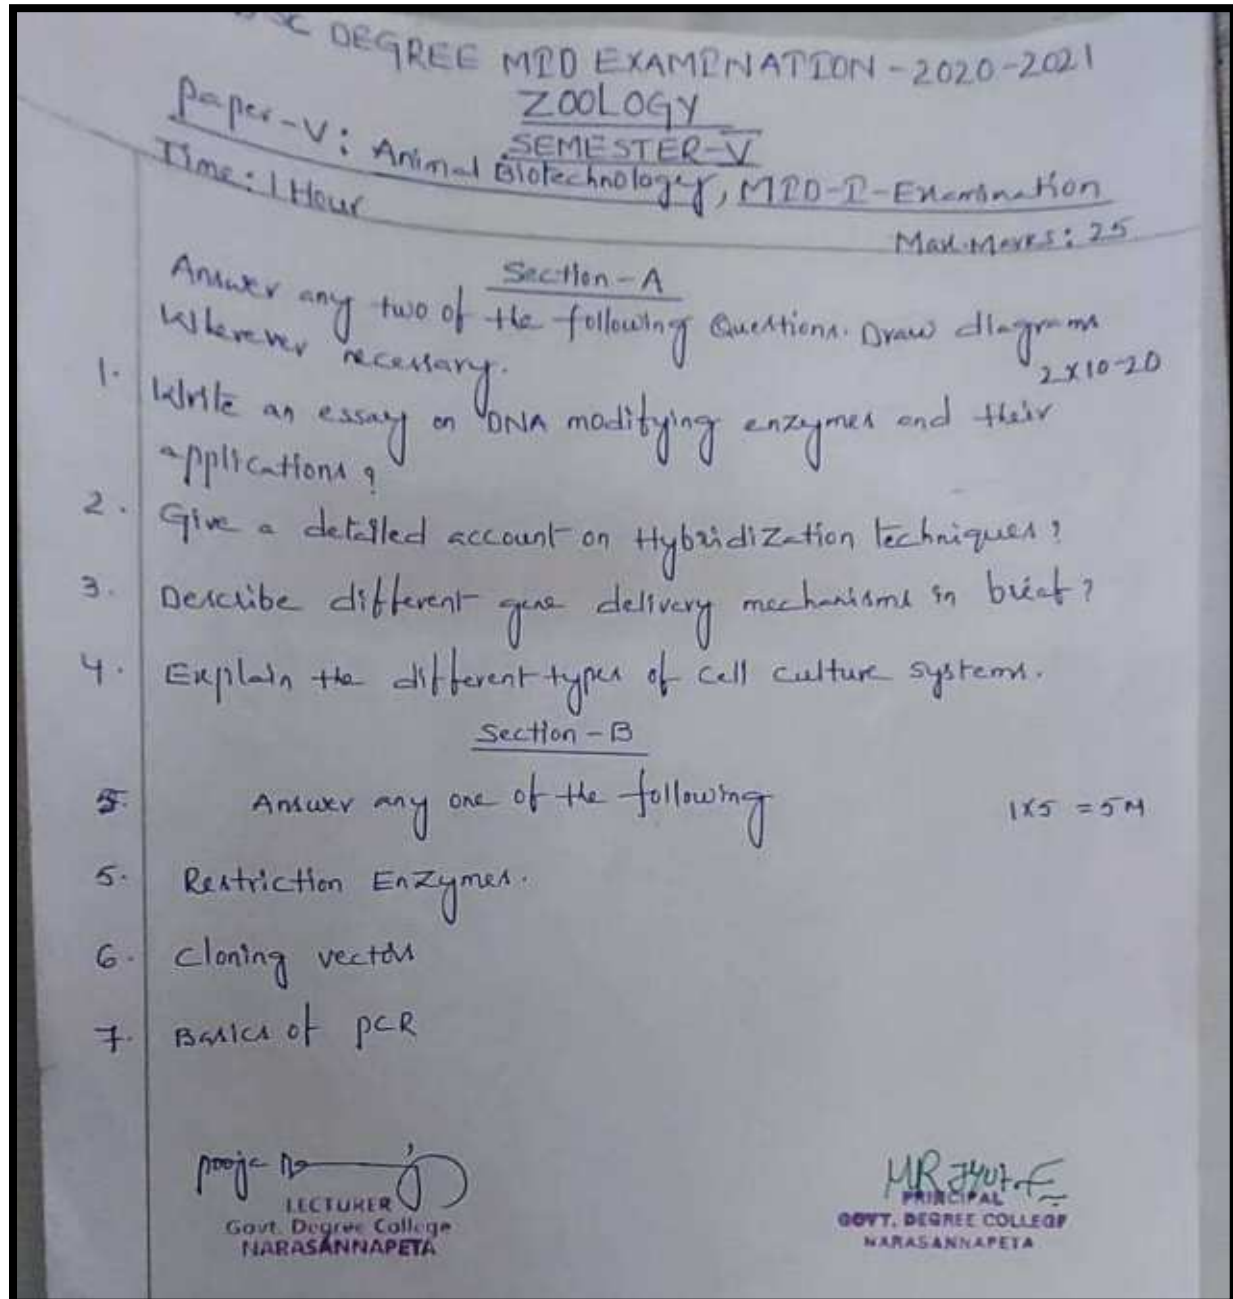 BSC DEGREE MID EXAMINATION - 2020-2021
ZOOLOGY
SEMESTER-V
Paper-V: Animal Biotechnology, MID-I-Examination
Time: 1 Hour
Max.Marks: 25
Section-A
Answer any two of the following Questions. Draw diagrams
Wherever necessary.
2x10-20
1. Write an essay on DNA modifying enzymes and their
applications?
2. Give a detailed account on Hybridization techniques?
3. Describe different gene delivery mechanisms in brief?
4. Explain the different types of cell culture systems.
Section-B
Answer any one of the following 1x5 = 5M
5. Restriction Enzymes.
6. Cloning vectors
7. Basics of PCR
LECTURER
Govt. Degree College
NARASANNAPETA
PRINCIPAL
GOVT. DEGREE COLLEGE
NARASANNAPETA